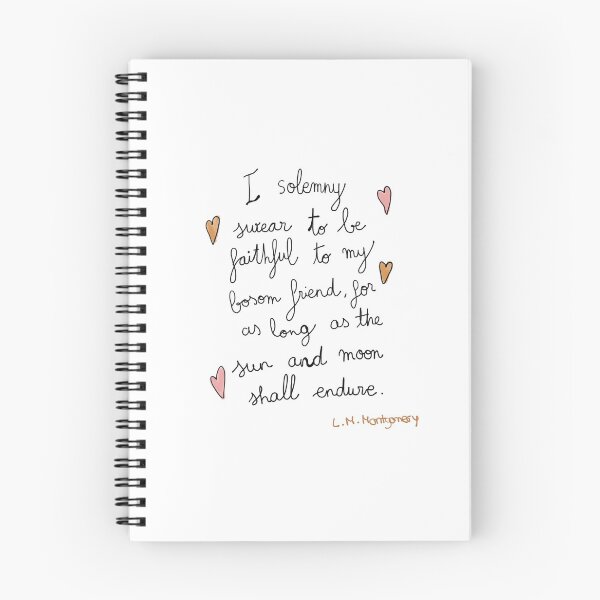 I solemny
swear to be
faithful to my
bosom friend, for
as long as the
sun and moon
shall endure.
L.M. Montgomery